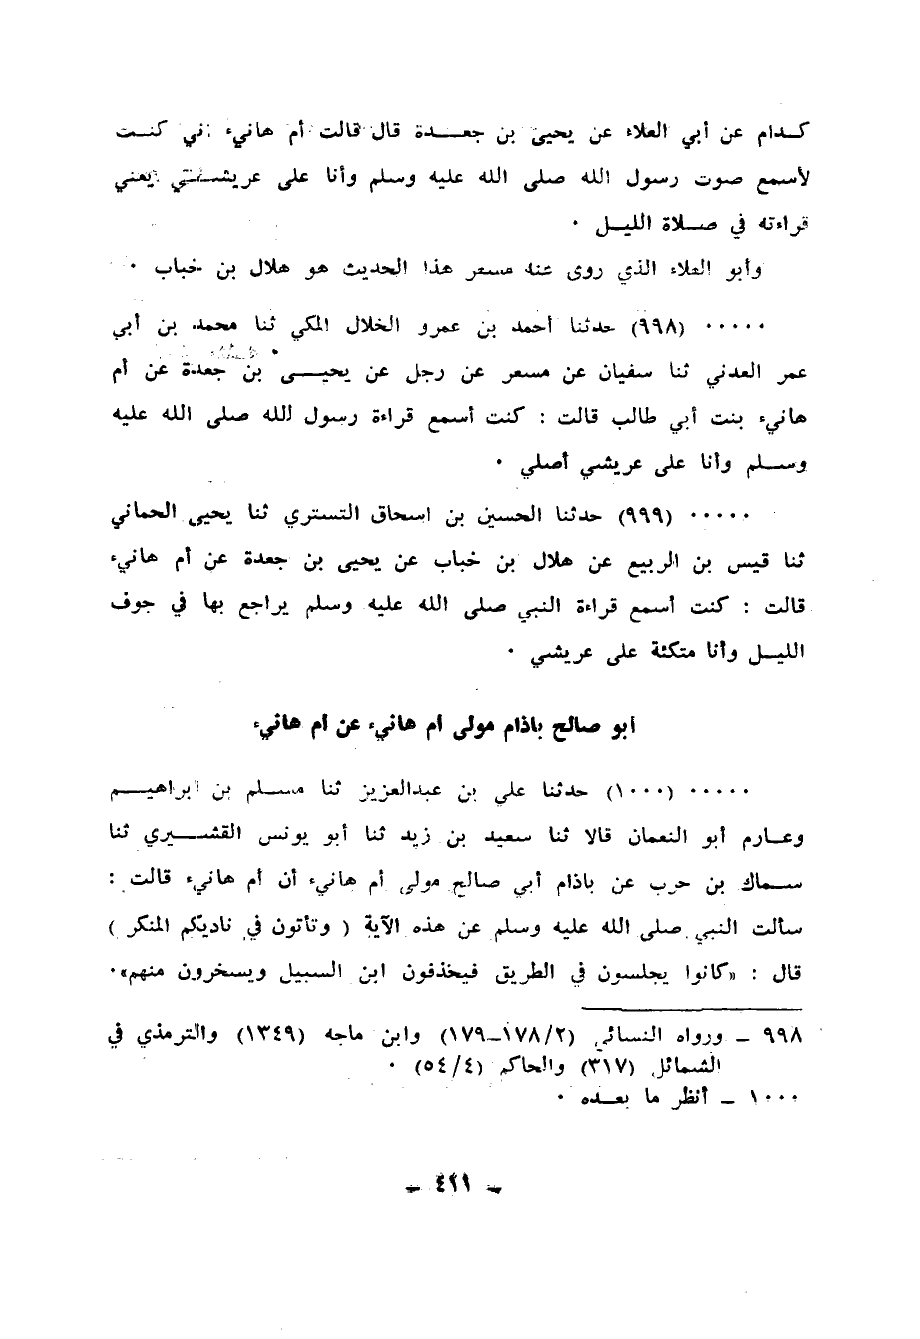 كدام عن أبي العلاء عن يحيى بن جعدة قال قالت أم هانيء إني كنت
لأسمع صوت رسول الله صلى الله عليه وسلم وأنا على عريشتي يعني
قراءته في صلاة الليل ٠
وأبو العلاء الذي روى عنه مسعر هذا الحديث هو هلال بن خباب ٠
٠٠٠٠٠ (٩٩٨) حدثنا أحمد بن عمرو الخلال المكي ثنا محمد بن أبي
عمر العدني ثنا سفيان عن مسعر عن رجل عن يحيى بن جعدة عن أم
هانيء بنت أبي طالب قالت : كنت أسمع قراءة رسول الله صلى الله عليه
وسلم وأنا على عريشي أصلي ٠
٠٠٠٠٠ (٩٩٩) حدثنا الحسين بن اسحاق التستري ثنا يحيى الحماني
ثنا قيس بن الربيع عن هلال بن خباب عن يحيى بن جعدة عن أم هانيء
قالت : كنت أسمع قراءة النبي صلى الله عليه وسلم يراجع بها في جوف
الليل وأنا متكئة على عريشي ٠
أبو صالح باذام مولى أم هانيء عن أم هانيء
٠٠٠٠٠ (١٠٠٠) حدثنا علي بن عبدالعزيز ثنا مسلم بن ابراهيم
وعارم أبو النعمان قالا ثنا سعيد بن زيد ثنا أبو يونس القشيري ثنا
سماك بن حرب عن باذام أبي صالح مولى أم هانيء أن أم هانيء قالت :
سألت النبي صلى الله عليه وسلم عن هذه الآية ( وتأتون في ناديكم المنكر )
قال : «كانوا يجلسون في الطريق فيخذفون ابن السبيل ويسخرون منهم»٠
٩٩٨ ـ ورواه النسائي (٢/١٧٨ـ١٧٩) وابن ماجه (١٣٤٩) والترمذي في
الشمائل (٣١٧) والحاكم (٤/٥٤) ٠
١٠٠٠ ـ أنظر ما بعده ٠